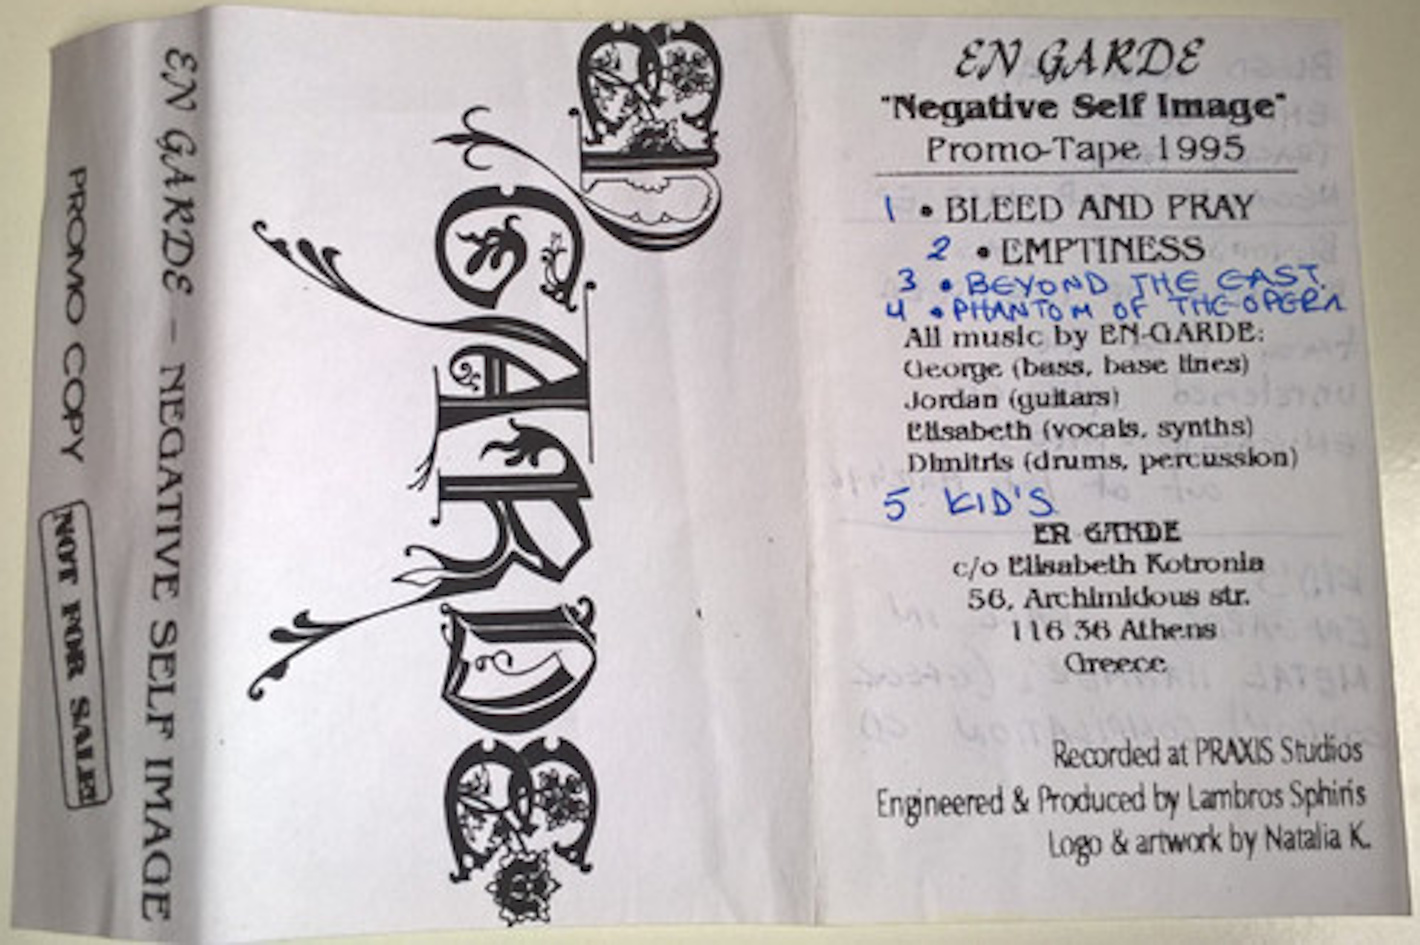 PROMO COPY
NOT FOR SALE!
EN GARDE - NEGATIVE SELF IMAGE
EN
GARDE
EN GARDE
"Negative Self Image"
Promo-Tape 1995
1 • BLEED AND PRAY
2 • EMPTINESS
3 • BEYOND THE EAST
4 • PHANTOM OF THE OPERA
All music by EN-GARDE:
George (bass, base lines)
Jordan (guitars)
Elisabeth (vocals, synths)
Dimitris (drums, percussion)
5 KID'S
EN GARDE
c/o Elisabeth Kotronia
56, Archimidous str.
116 36 Athens
Greece
Recorded at PRAXIS Studios
Engineered & Produced by Lambros Sphiris
Logo & artwork by Natalia K.